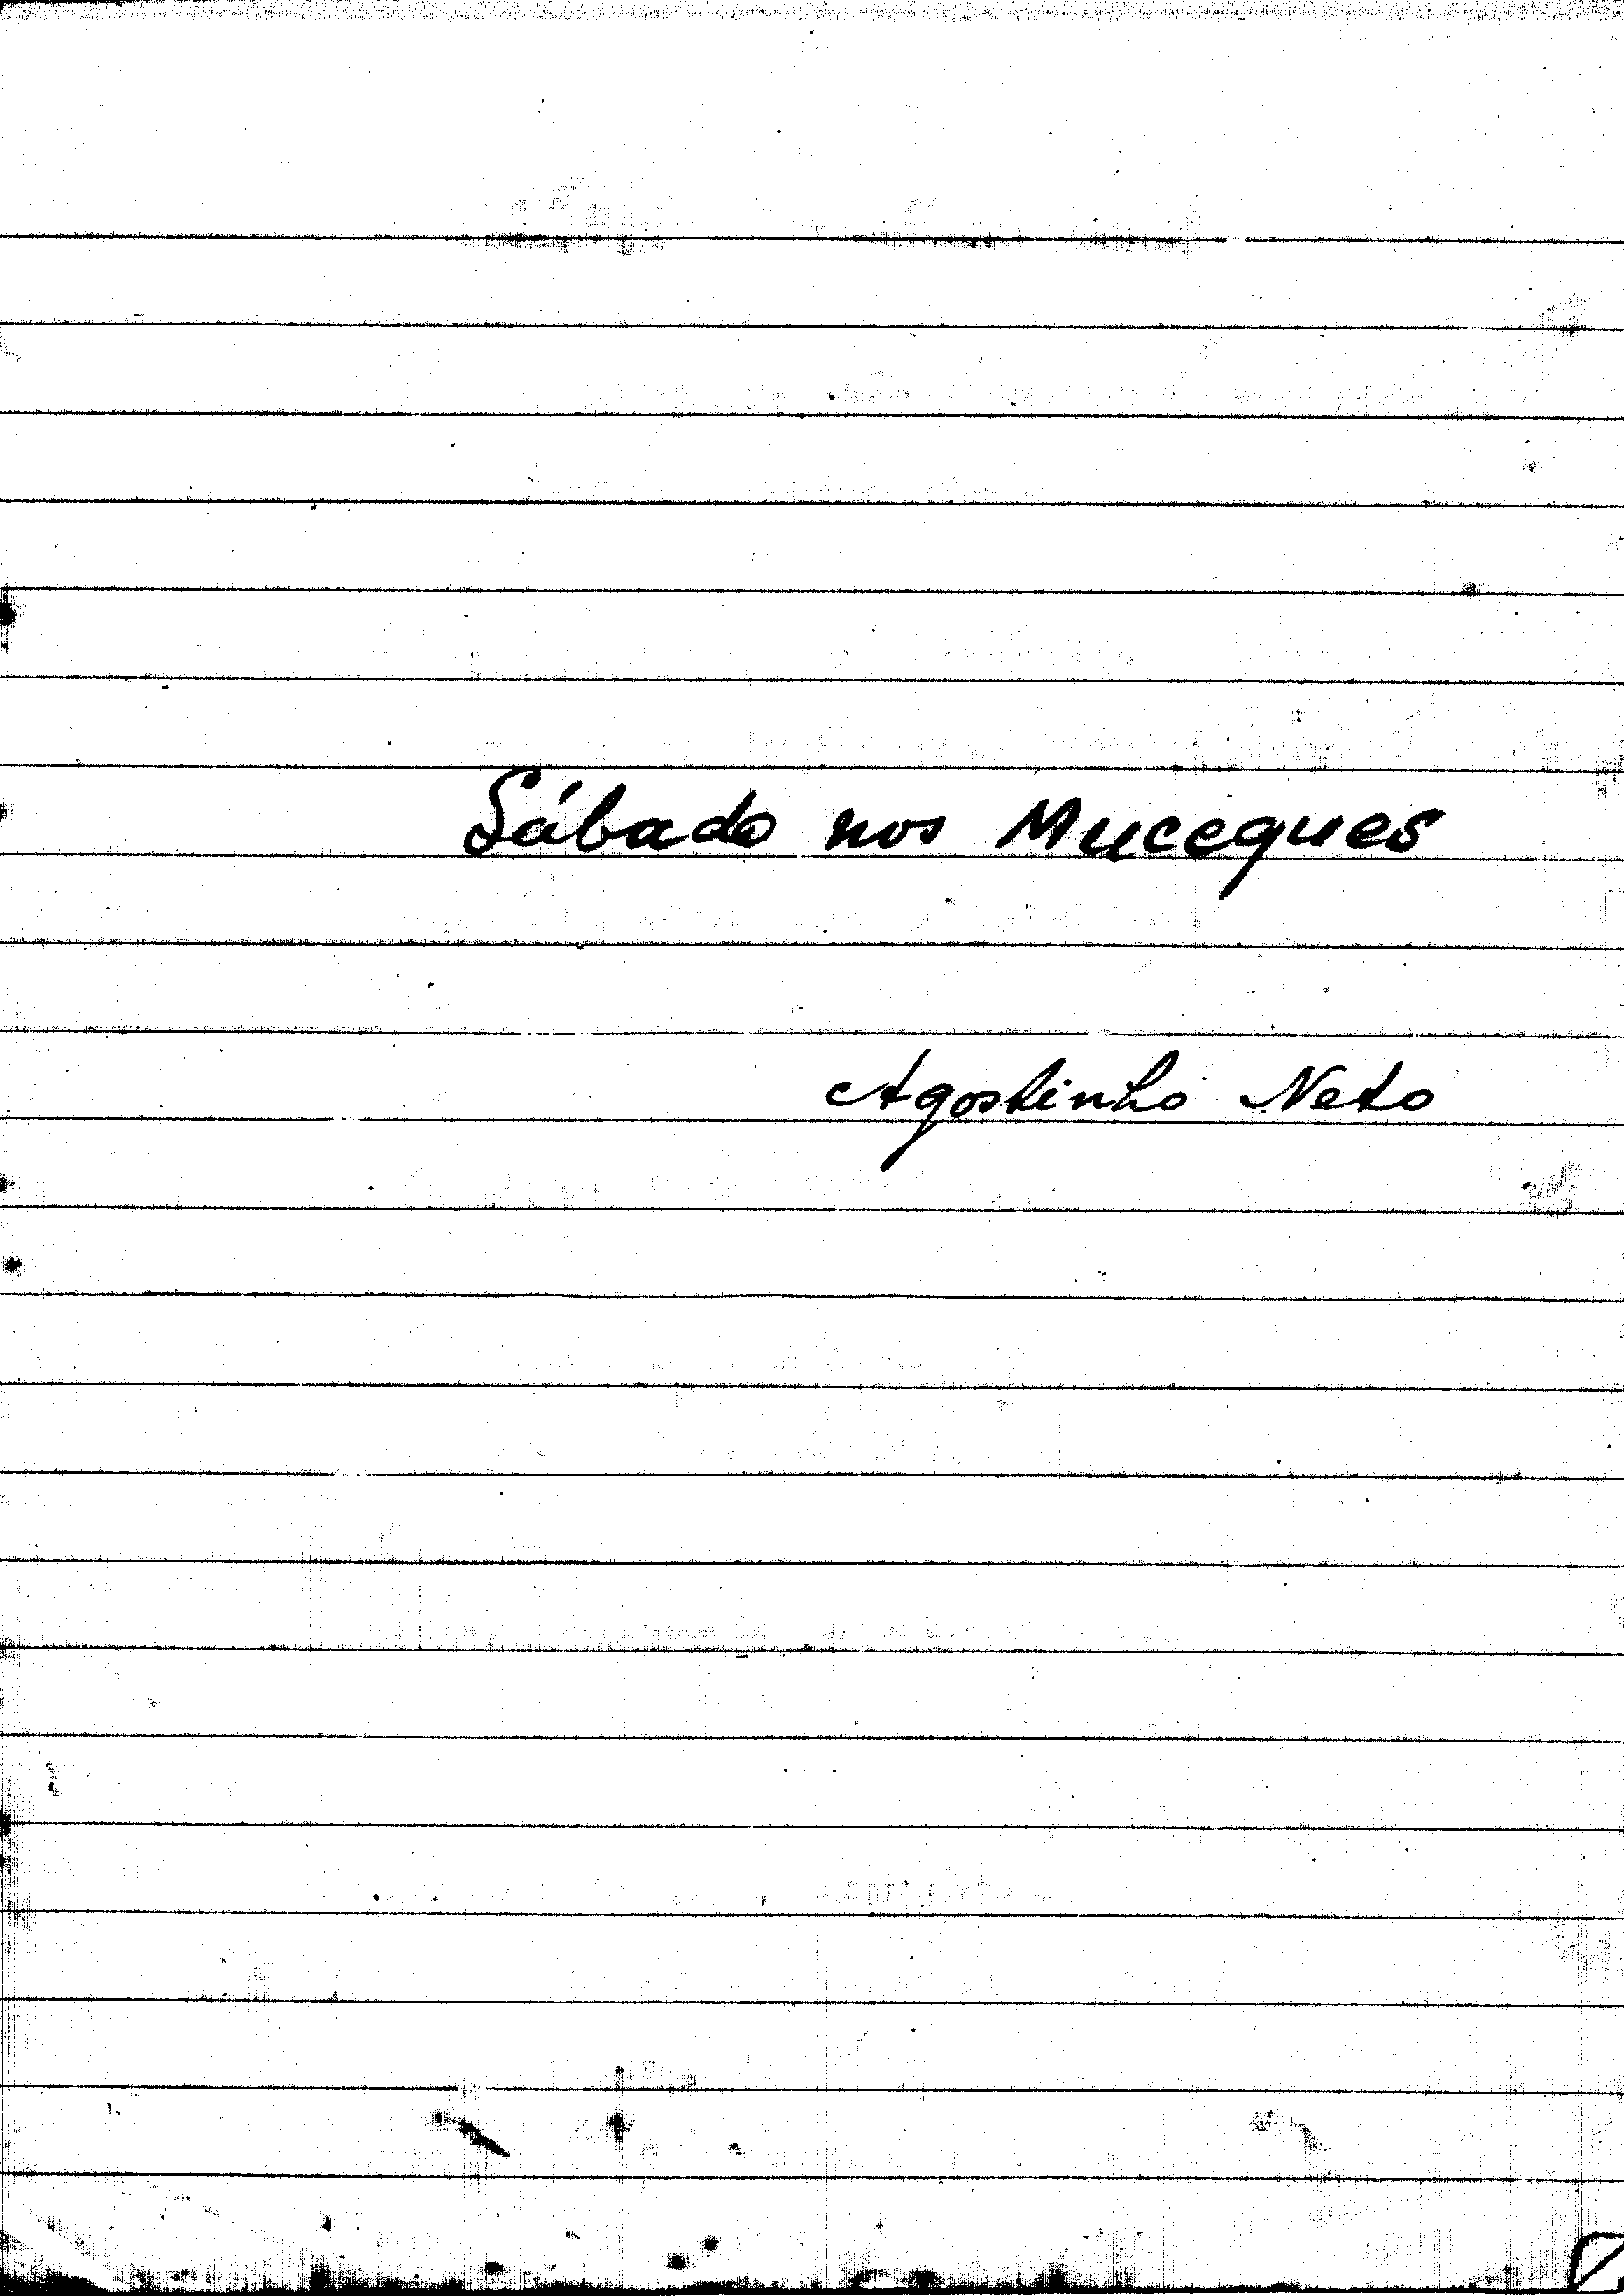 Sábado nos Muceques
Agostinho Neto